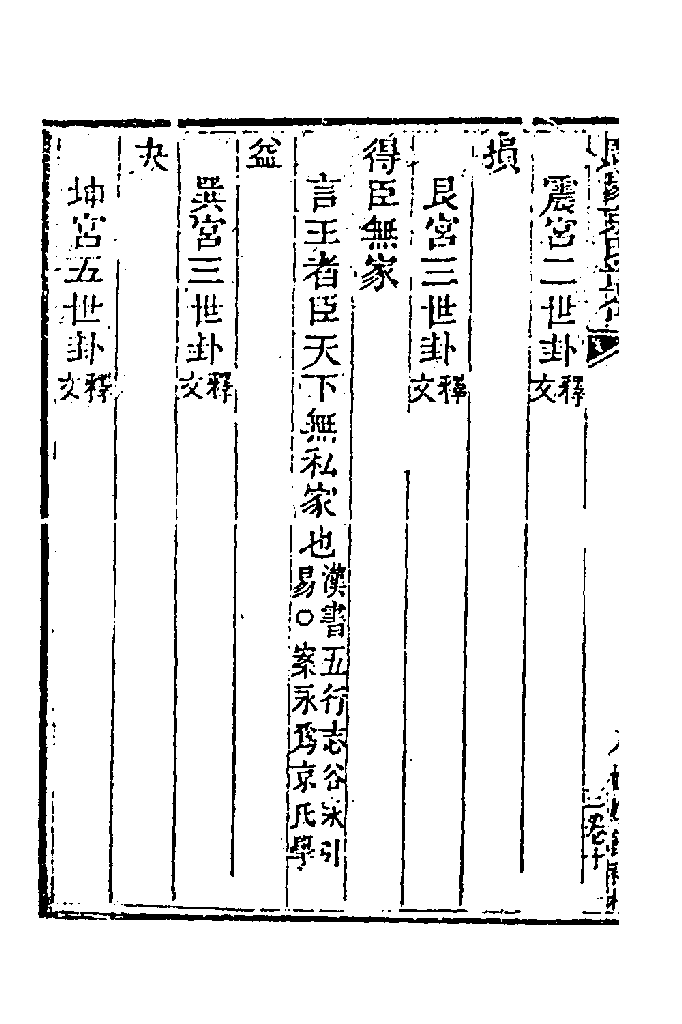 震宮二世卦釋文
損
艮宮三世卦釋文
得臣無家
言王者臣天下無私家也漢書五行志谷永引易○案永為京氏學
益
巽宮三世卦釋文
夬
坤宮五世卦釋文